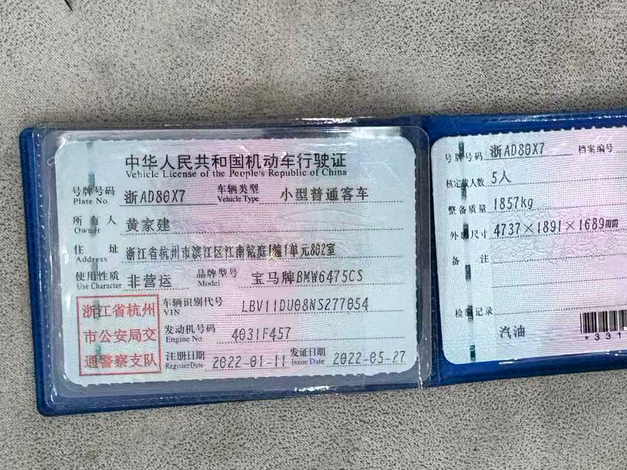 中华人民共和国机动车行驶证
Vehicle License of the People's Republic of China
号牌号码 浙AD80X7 车辆类型 小型普通客车
Plate No Vehicle Type
所有人 黄家建
Owner
住址 浙江省杭州市滨江区江南铭庭1幢1单元802室
Address
使用性质 非营运 品牌型号 宝马牌BMW6475CS
Use Character Model
浙江省杭州
市公安局交
通警察支队
车辆识别代号 LBV11DU08NS277054
VIN
发动机号码 4031F457
Engine No
注册日期 2022-01-11 发证日期 2022-05-27
Register Date Issue Date
号牌号码 浙AD80X7 档案编号
核定载人数 5人
整备质量 1857kg
外廓尺寸 4737×1891×1689
备注
检验记录
汽油
*331